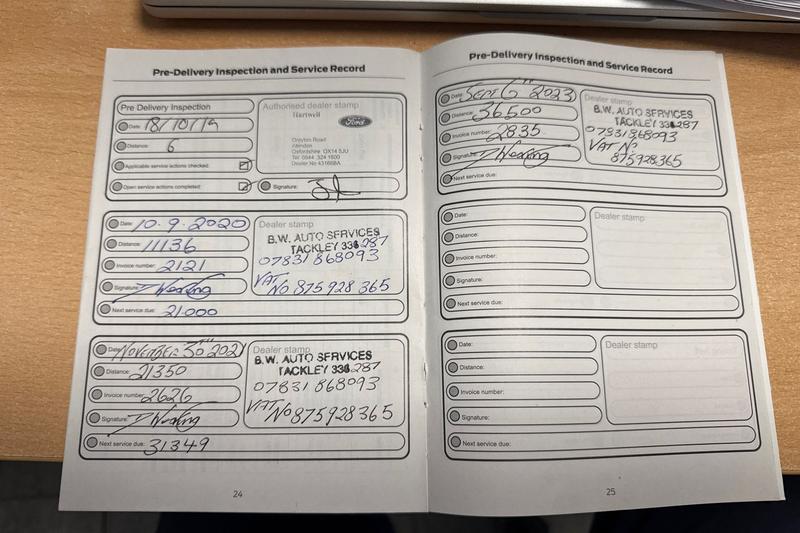 Pre-Delivery Inspection and Service Record
Pre Delivery Inspection
Date: 18/10/19
Distance: 6
Applicable service actions checked:
Open service actions completed:
Authorised dealer stamp
Hartwell
Ford
Drayton Road
Abingdon
Oxfordshire OX14 5JU
Tel: 0844 324 1600
Dealer No 43166BA
Signature:
Date: 10.9.2020
Distance: 11136
Invoice number: 2121
Signature:
Next service due: 21000
Dealer stamp
B.W. AUTO SERVICES
TACKLEY 331287
07831 868093
VAT
No 875 928 365
Date: NOVEMBER 30TH 2021
Distance: 21350
Invoice number: 2626
Signature:
Next service due: 31349
Dealer stamp
B.W. AUTO SERVICES
TACKLEY 331287
07831 868093
VAT No 875928365
24
Pre-Delivery Inspection and Service Record
Date: SEPT 6TH 2023
Distance: 36500
Invoice number: 2835
Signature:
Next service due:
Dealer stamp
B.W. AUTO SERVICES
TACKLEY 331287
07831868093
VAT No
875928365
Date:
Distance:
Invoice number:
Signature:
Next service due:
Dealer stamp
Date:
Distance:
Invoice number:
Signature:
Next service due:
Dealer stamp
25